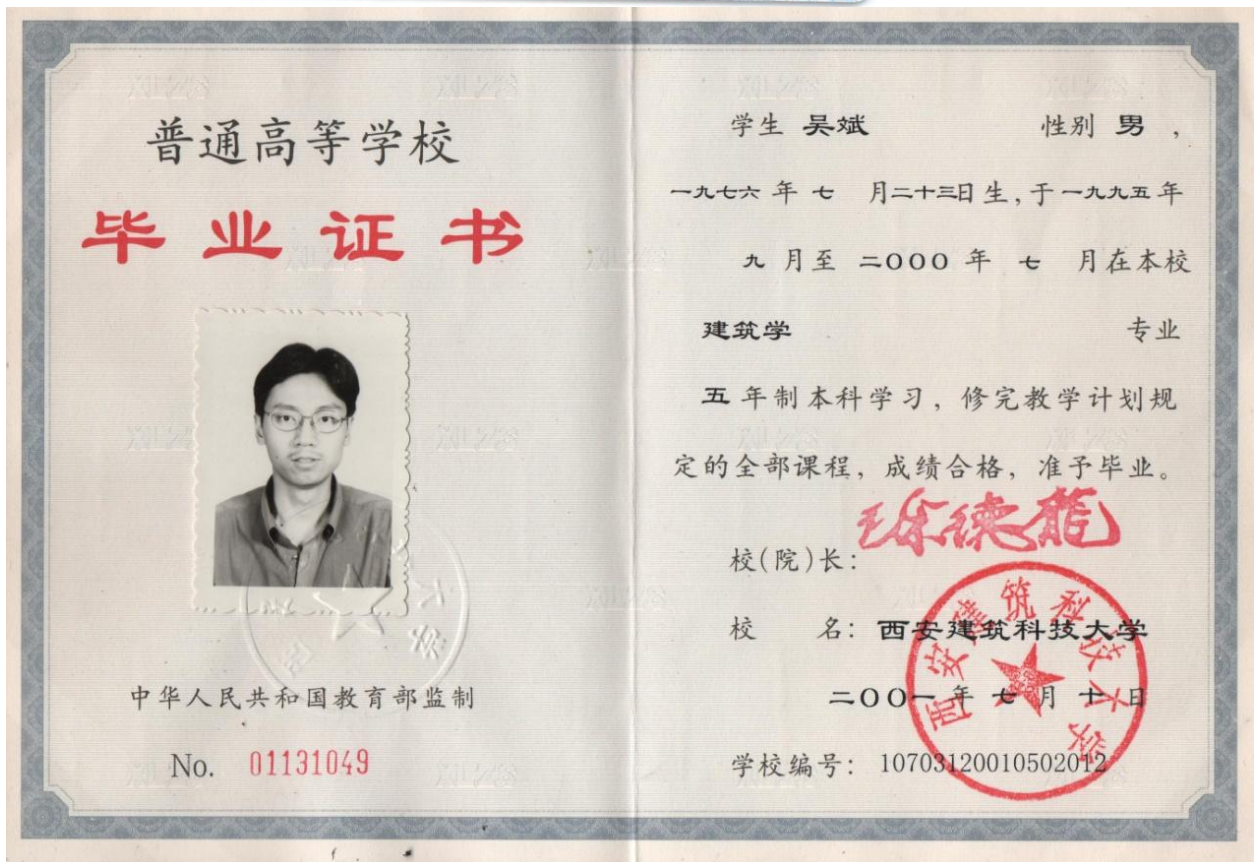 普通高等学校
毕业证书
中华人民共和国教育部监制
No. 01131049
学生 吴斌 性别 男 ,
一九七六 年 七 月二十三日生,于一九九五年
九 月至 二000 年 七 月在本校
建筑学 专业
五 年制本科学习, 修完教学计划规
定的全部课程, 成绩合格, 准予毕业。
徐德龙
校(院)长:
校 名: 西安建筑科技大学
二00一 年 七 月 十 日
西安建筑科技大学
学校编号: 10703120010502012